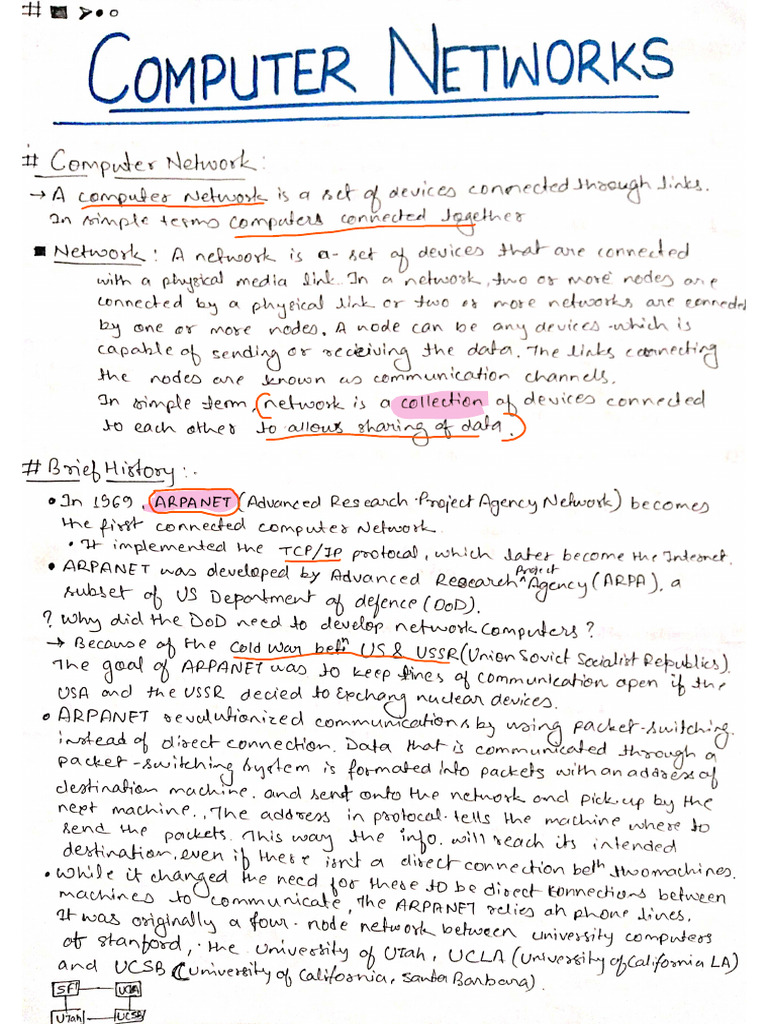 #
COMPUTER NETWORKS
# Computer Network:
→ A computer Network is a set of devices connected through links.
In simple terms computers connected together
■ Network: A network is a- set of devices that are connected
with a physical media link. In a network, two or more nodes are
connected by a physical link or two or more networks are conneded
by one or more nodes. A node can be any devices which is
capable of sending or receiving the data. The links connecting
the nodes are known as communication channels.
In simple term, (network is a collection of devices connected
to each other to allows sharing of data.)
# Brief History:-
• In 1969, ARPANET (Advanced Research Project Agency Network) becomes
the first connected computer Network.
• It implemented the TCP/IP protocal, which later become the Internet.
• ARPANET was developed by Advanced Research Project Agency (ARPA), a
subset of US Department of defence (DoD).
? Why did the DoD need to develop network computers?
→ Because of the cold war betn US & USSR (Union Soviet Socialist Republics).
The goal of ARPANET was to keep lines of communication open if the
USA and the USSR decied to Exchang nuclear devices.
• ARPANET revolutionized communications by using packet-switching.
instead of direct connection. Data that is communicated through a
packet-switching system is formated into packets with an address of
destination machine. and sent onto the network and pick up by the
next machine., The address in protocal tells the machine where to
send the packets. This way the info. will reach its intended
destination, even if there isnt a direct connection betn two machines.
• While it changed the need for there to be direct connections between
machines to communicate, The ARPANET relies on phone lines.
It was originally a four-node network between university computers
at stanford, the University of Utah, UCLA (University of California LA)
and UCSB (University of California, Santa Barbara).
SF UCLA
Utah UCSB